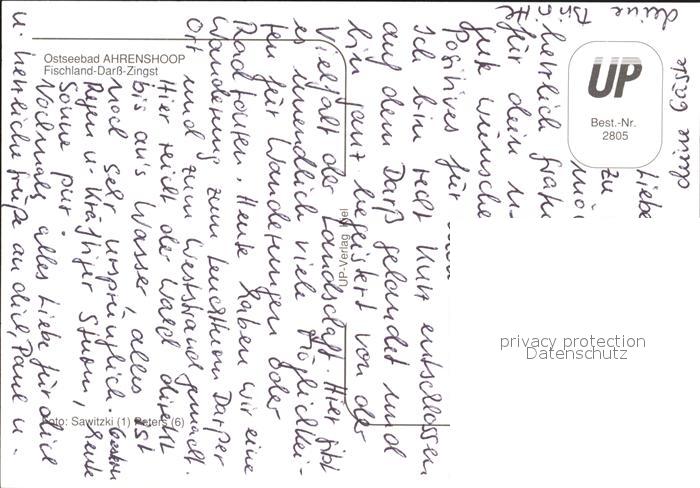 Ostseebad AHRENSHOOP
Fischland-Darß-Zingst
UP
Best.-Nr.
2805
UP-Verlag
Foto: Sawitzki (1) Peters (6)
privacy protection
Datenschutz
Liebe
zu
herzlich
für dein
gute Wünsche
positives für
Ich bin recht kurz entschlossen
auf dem Darß gelandet und
bin ganz begeistert von der
Vielfalt der Landschaft. Hier gibt
es unendlich viele Möglichkei-
ten für Wanderungen oder
Radtouren. Heute haben wir eine
Wanderung zum Leuchtturm Darßer
Ort und zum Weststrand gemacht.
Hier reicht der Wald direkt
bis an's Wasser, alles ist
noch sehr ursprünglich. Gestern
Regen u. kräftiger Sturm, heute
Sonne pur.
Nochmals alles Liebe für dich
u. herzliche Grüße an dich, u.
deine